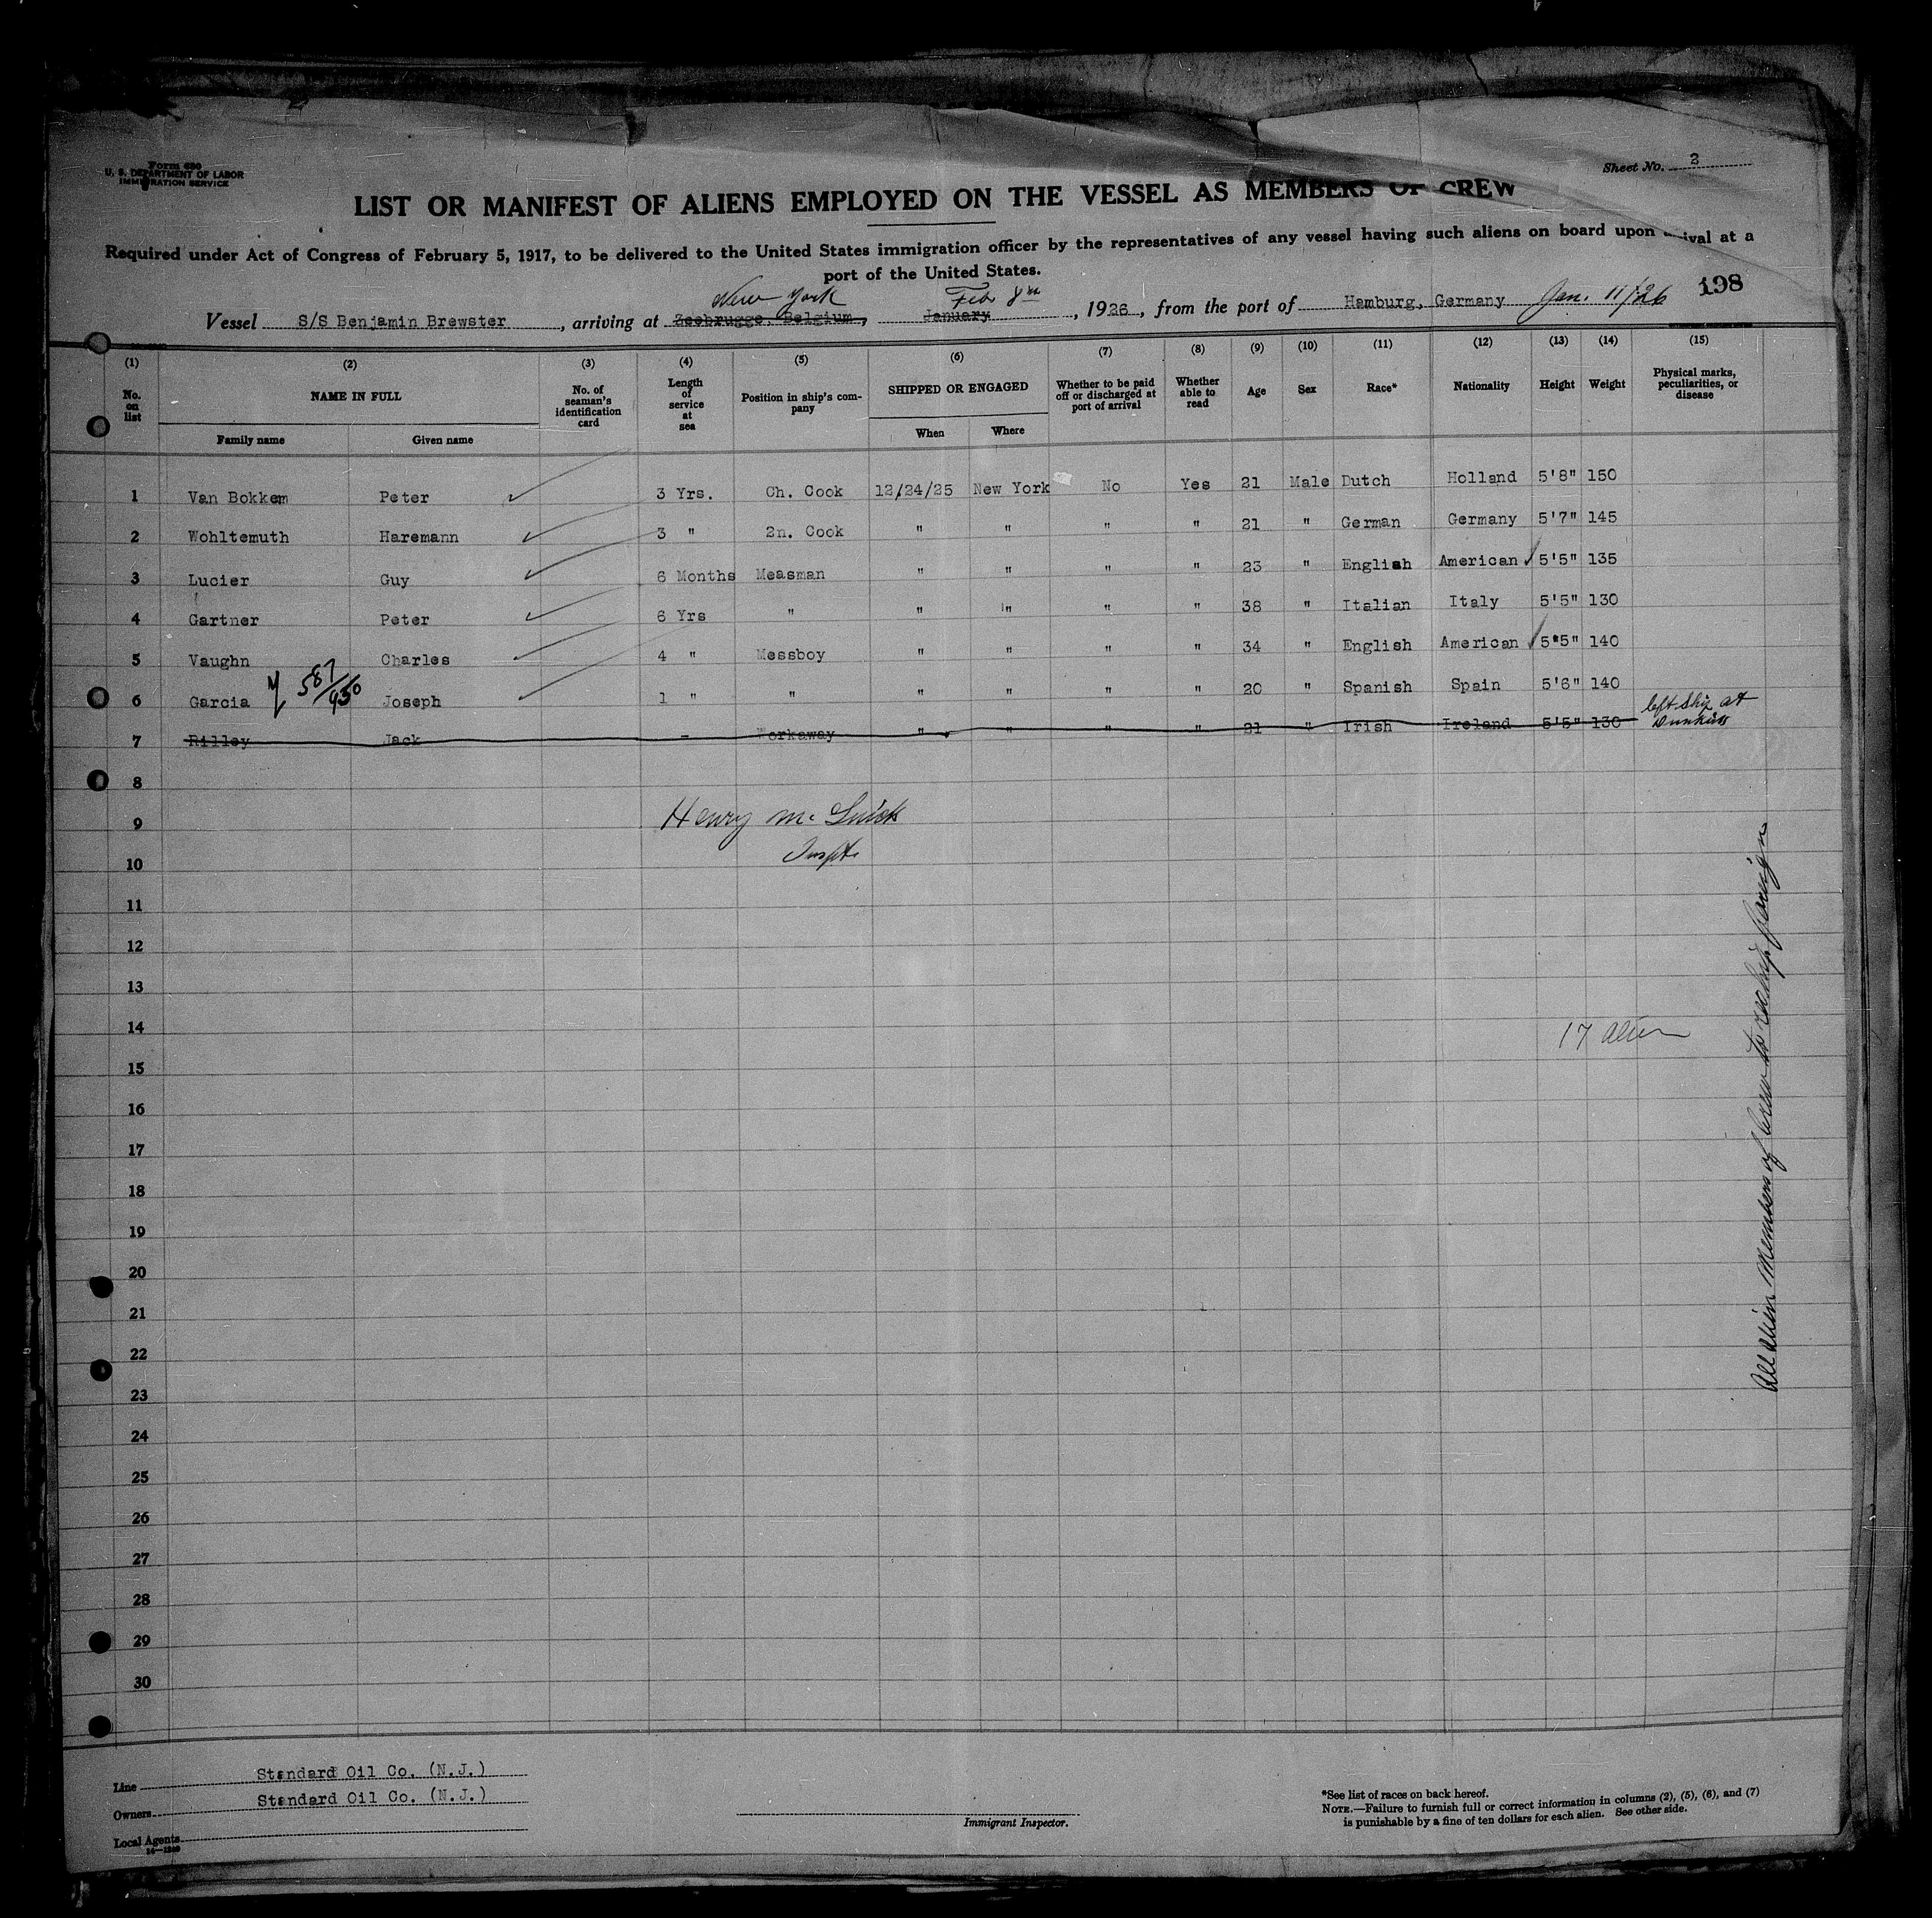 Form 680
U. S. DEPARTMENT OF LABOR
IMMIGRATION SERVICE
Sheet No. 2
LIST OR MANIFEST OF ALIENS EMPLOYED ON THE VESSEL AS MEMBERS OF CREW
Required under Act of Congress of February 5, 1917, to be delivered to the United States immigration officer by the representatives of any vessel having such aliens on board upon arrival at a
port of the United States.
198
New York Feb 8th
Vessel S/S Benjamin Brewster, arriving at Zeebrugge, Belgium, January, 1926, from the port of Hamburg, Germany Jan. 11/26
(1) (2) (3) (4) (5) (6) (7) (8) (9) (10) (11) (12) (13) (14) (15)
No. on list NAME IN FULL No. of seaman's identification card Length of service at sea Position in ship's company SHIPPED OR ENGAGED Whether to be paid off or discharged at port of arrival Whether able to read Age Sex Race* Nationality Height Weight Physical marks, peculiarities, or disease
Family name Given name When Where
1 Van Bokkem Peter 3 Yrs. Ch. Cook 12/24/25 New York No Yes 21 Male Dutch Holland 5'8" 150
2 Wohltemuth Haremann 3 " 2n. Cook " " " " 21 " German Germany 5'7" 145
3 Lucier Guy 6 Months Measman " " " " 23 " English American 5'5" 135
4 Gartner Peter 6 Yrs " " " " " 38 " Italian Italy 5'5" 130
5 Vaughn Charles 4 " Messboy " " " " 34 " English American 5'5" 140
6 Garcia 587/950 Joseph 1 " " " " " " 20 " Spanish Spain 5'6" 140
7 Rilley Jack - Workaway " " " " 21 " Irish Ireland 5'5" 130 left ship at
8
9 Henry Mc
10 Inspt.
11
12
13
14 17 alien
15
16
17
18
19
20
21
22
23
24
25
26
27
28
29
30
All Alien Members of Crew to reship foreign
Line Standard Oil Co. (N.J.)
Owners Standard Oil Co. (N.J.)
Local Agents
14—1240
Immigrant Inspector.
*See list of races on back hereof.
NOTE.—Failure to furnish full or correct information in columns (2), (5), (6), and (7)
is punishable by a fine of ten dollars for each alien. See other side.